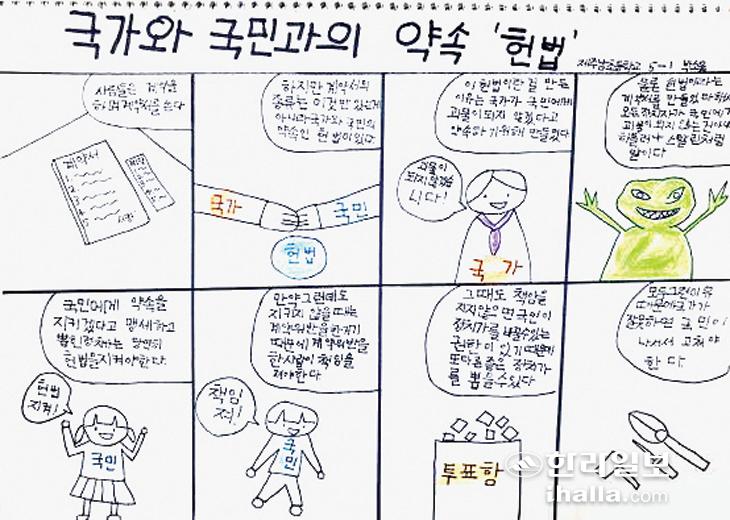 국가와 국민과의 약속 '헌법'
제주남초등학교 5-1
사람들은 계약을
하시며 계약서를 쓴다
계약서
1
2
3
4
5
사인
하지만 계약서의
종류는 이것만 있는게
아니라 국가와 국민의
약속인 헌법이 있다
국가
국민
헌법
이 헌법이란 걸 만든
이유는 국가가 국민에게
괴물이 되지 않겠다고
약속하기 위해 만들었다
괴물이
되지 않겠습
니다!
국가
물론 헌법이라는
계약서를 만들었다 해서
모든 정치자가 국민에게
괴물이 되지 않는 건 아니다
히틀러나 스탈린처럼
말이다
국민에게 약속을
지키겠다고 맹세하고
당연히
헌법을 지켜야한다.
헌법
지켜!
국민
만약 그런데도
지키지 않을 때는
계약위반을 한거기
때문에 계약위반을
한 사람이 책임을
져야한다
책임
져!
국민
그때도 책임을
지지 않으면 국민이
정치가를 내쫓을 수 있는
권한이 있기 때문에
또 다른 좋은 정치가
를 뽑을 수 있다
투표함
모두 그런 이유
때문에 국가가
잘못하면 국민이
나서서 고쳐야
한다.
한라일보
ihalla.com